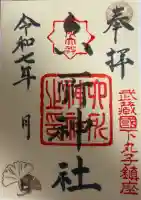 奉拝
武蔵國下丸子鎮座
六所神社
令和七年 月 日